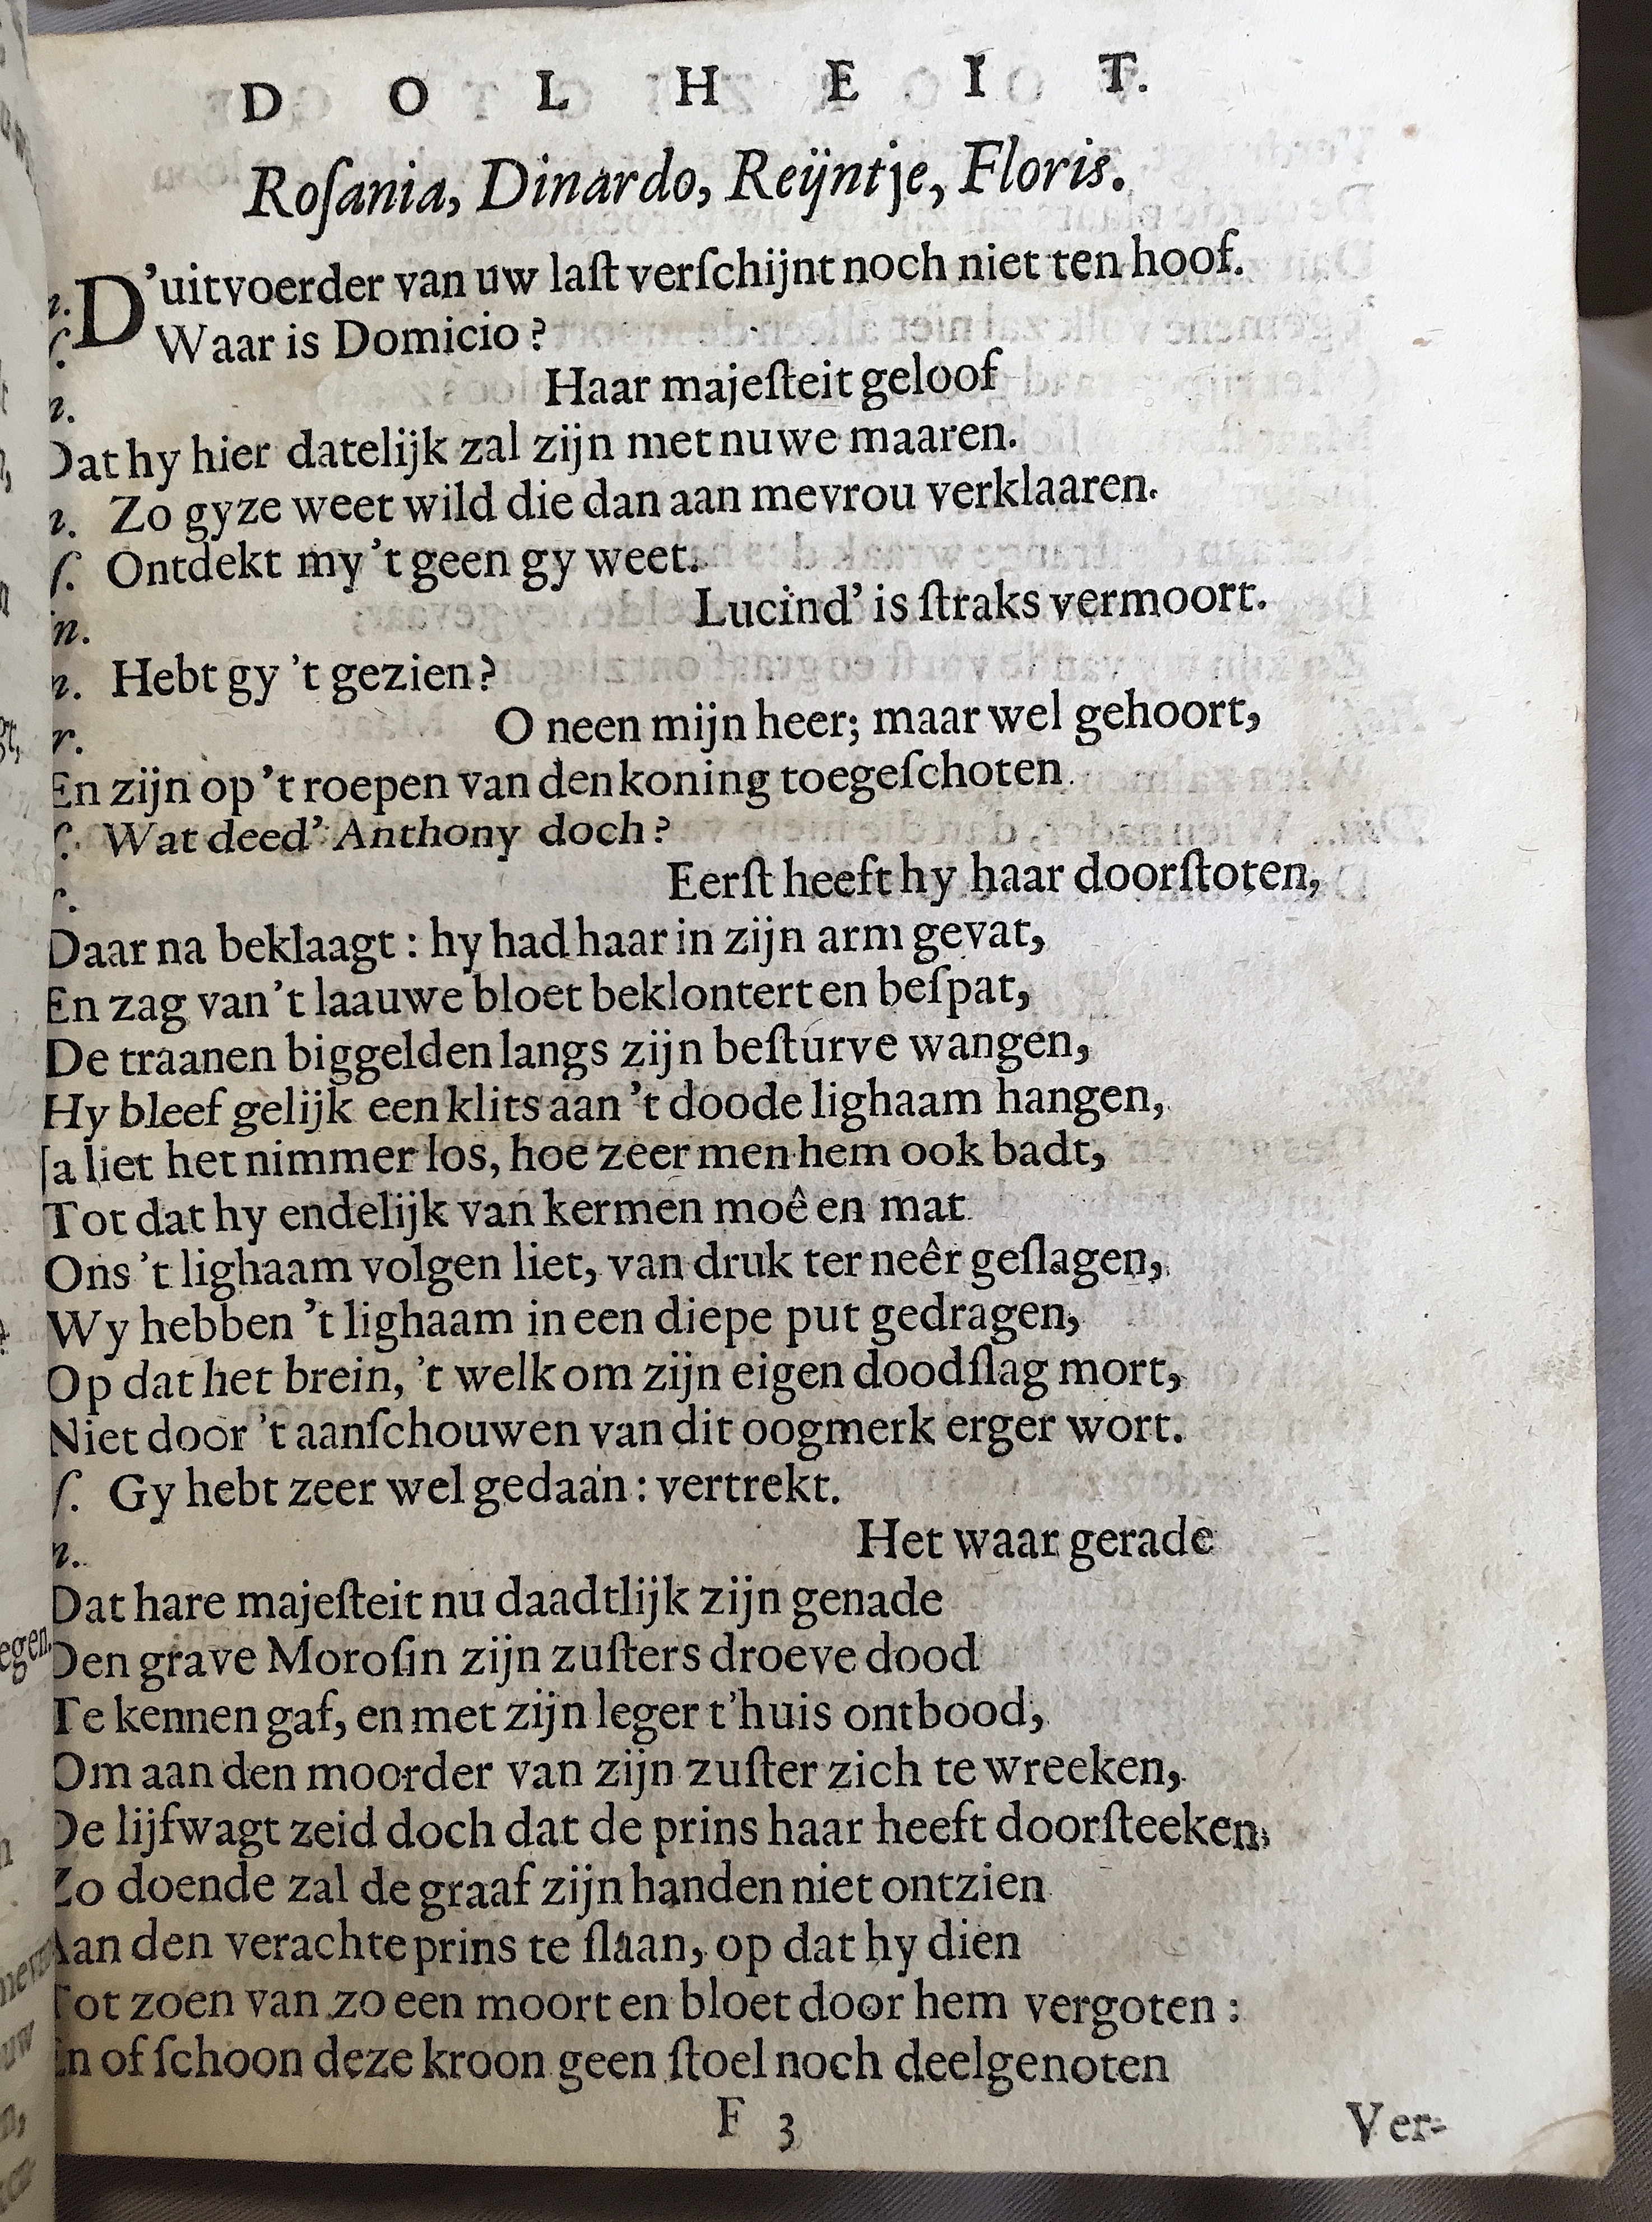 D O L H E I T.
Roſania, Dinardo, Reijntje, Floris.
n. D'uitvoerder van uw laſt verſchijnt noch niet ten hoof.
ſ. Waar is Domicio?
n. Haar majeſteit geloof
Dat hy hier datelijk zal zijn met nuwe maaren.
n. Zo gyze weet wild die dan aan mevrou verklaaren.
ſ. Ontdekt my 't geen gy weet.
in. Lucind' is ſtraks vermoort.
n. Hebt gy 't gezien?
r. O neen mijn heer; maar wel gehoort,
En zijn op 't roepen van den koning toegeſchoten.
ſ. Wat deed' Anthony doch?
r. Eerſt heeft hy haar doorſtoten,
Daar na beklaagt: hy had haar in zijn arm gevat,
En zag van 't laauwe bloet beklontert en beſpat,
De traanen biggelden langs zijn beſturve wangen,
Hy bleef gelijk een klits aan 't doode lighaam hangen,
Ja liet het nimmer los, hoe zeer men hem ook badt,
Tot dat hy endelijk van kermen moê en mat
Ons 't lighaam volgen liet, van druk ter neêr geſlagen,
Wy hebben 't lighaam in een diepe put gedragen,
Op dat het brein, 't welk om zijn eigen doodſlag mort,
Niet door 't aanſchouwen van dit oogmerk erger wort.
ſ. Gy hebt zeer wel gedaan: vertrekt.
n. Het waar gerade
Dat hare majeſteit nu daadtlijk zijn genade
Den grave Moroſin zijn zuſters droeve dood
Te kennen gaf, en met zijn leger t'huis ontbood,
Om aan den moorder van zijn zuſter zich te wreeken,
De lijfwagt zeid doch dat de prins haar heeft doorſteeken,
Zo doende zal de graaf zijn handen niet ontzien
Aan den verachte prins te ſlaan, op dat hy dien
Tot zoen van zo een moort en bloet door hem vergoten:
En of ſchoon deze kroon geen ſtoel noch deelgenoten
F 3
Ver-